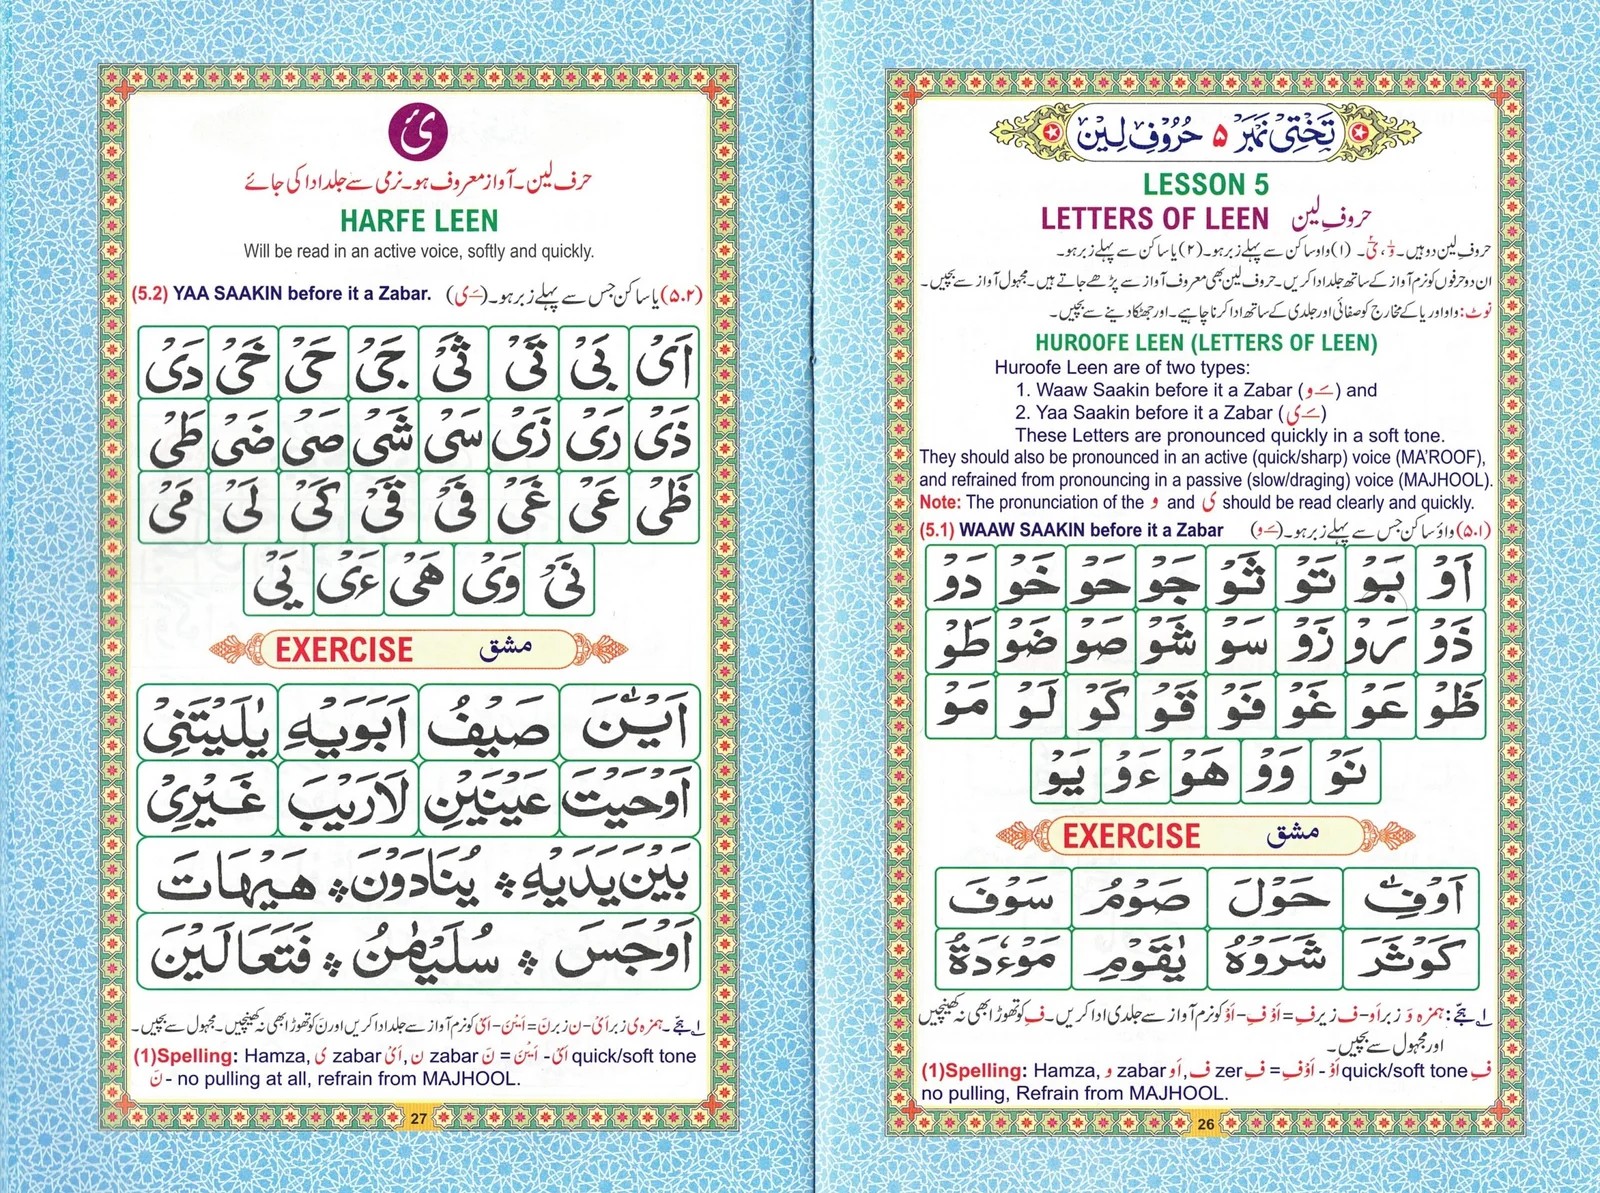 تختی نمبر ۵ حُرُوفِ لِین
LESSON 5
LETTERS OF LEEN حروفِ لین
حروفِ لین دو ہیں۔ وْ، یْ۔ (۱) واو ساکن سے پہلے زبر ہو۔ (۲) یا ساکن سے پہلے زبر ہو۔
ان دو حرفوں کو نرم آواز کے ساتھ جلد ادا کریں۔ حروف لین بھی معروف آواز سے پڑھے جاتے ہیں۔ مجہول آواز سے بچیں۔
نوٹ: واو اور یا کے مخارج کو صفائی اور جلدی کے ساتھ ادا کرنا چاہیے۔ اور جھٹکا دینے سے بچیں۔
HUROOFE LEEN (LETTERS OF LEEN)
Huroofe Leen are of two types:
1. Waaw Saakin before it a Zabar (ـَ و) and
2. Yaa Saakin before it a Zabar (ـَ ی)
These Letters are pronounced quickly in a soft tone.
They should also be pronounced in an active (quick/sharp) voice (MA'ROOF),
and refrained from pronouncing in a passive (slow/draging) voice (MAJHOOL).
Note: The pronunciation of the و and ی should be read clearly and quickly.
(5.1) WAAW SAAKIN before it a Zabar (ـَ و) (۵.۱) واؤ ساکن جس سے پہلے زبر ہو۔
اَوْ بَوْ تَوْ ثَوْ جَوْ حَوْ خَوْ دَوْ
ذَوْ رَوْ زَوْ سَوْ شَوْ صَوْ ضَوْ طَوْ
ظَوْ عَوْ غَوْ فَوْ قَوْ كَوْ لَوْ مَوْ
نَوْ وَوْ هَوْ ءَوْ يَوْ
EXERCISE مشق
اَوْفِ حَوْلَ صَوْمُ سَوْفَ
كَوْثَرَ شَرَوْهُ يٰقَوْمِ مَوْءٗدَةُ
۱۔ ہجّے: ہمزہ وَ زبر اَو - ف زیر فِ = اَوْفِ - اَوْ کو نرم آواز سے جلدی ادا کریں۔ فِ کو تھوڑا بھی نہ کھینچیں
اور مجہول سے بچیں۔
(1)Spelling: Hamza, و zabar اَو, ف zer فِ = اَوْفِ - اَوْ quick/soft tone فِ
no pulling, Refrain from MAJHOOL.
26
یْ
حرف لین۔ آواز معروف ہو۔ نرمی سے جلد ادا کی جائے
HARFE LEEN
Will be read in an active voice, softly and quickly.
(5.2) YAA SAAKIN before it a Zabar. (ـَ ی) (۵.۲) یا ساکن جس سے پہلے زبر ہو۔
اَیْ بَیْ تَیْ ثَیْ جَیْ حَیْ خَیْ دَیْ
ذَیْ رَیْ زَیْ سَیْ شَیْ صَیْ ضَیْ طَیْ
ظَیْ عَیْ غَیْ فَیْ قَیْ كَیْ لَیْ مَیْ
نَیْ وَیْ هَیْ ءَیْ يَیْ
EXERCISE مشق
اَيْنَ صَيْفُ اَبَوَيْهِ يٰلَيْتَنِیْ
اَوْحَيْتَ عَيْنَيْنِ لَارَيْبَ غَيْرِیْ
بَيْنَ يَدَيْهِ ۞ يُنَادَوْنَ ۞ هَيْهَاتَ
اَوْجَسَ ۞ سُلَيْمٰنُ ۞ فَتَعَالَيْنَ
۱۔ ہجّے۔ ہمزہ ی زبر اَیْ - ن زبر نَ = اَيْنَ - اَیْ کو نرم آواز سے جلد ادا کریں اور نَ کو تھوڑا بھی نہ کھینچیں۔ مجہول سے بچیں۔
(1)Spelling: Hamza, ی zabar اَیْ, ن zabar نَ = اَيْنَ - اَیْ quick/soft tone
نَ - no pulling at all, refrain from MAJHOOL.
27